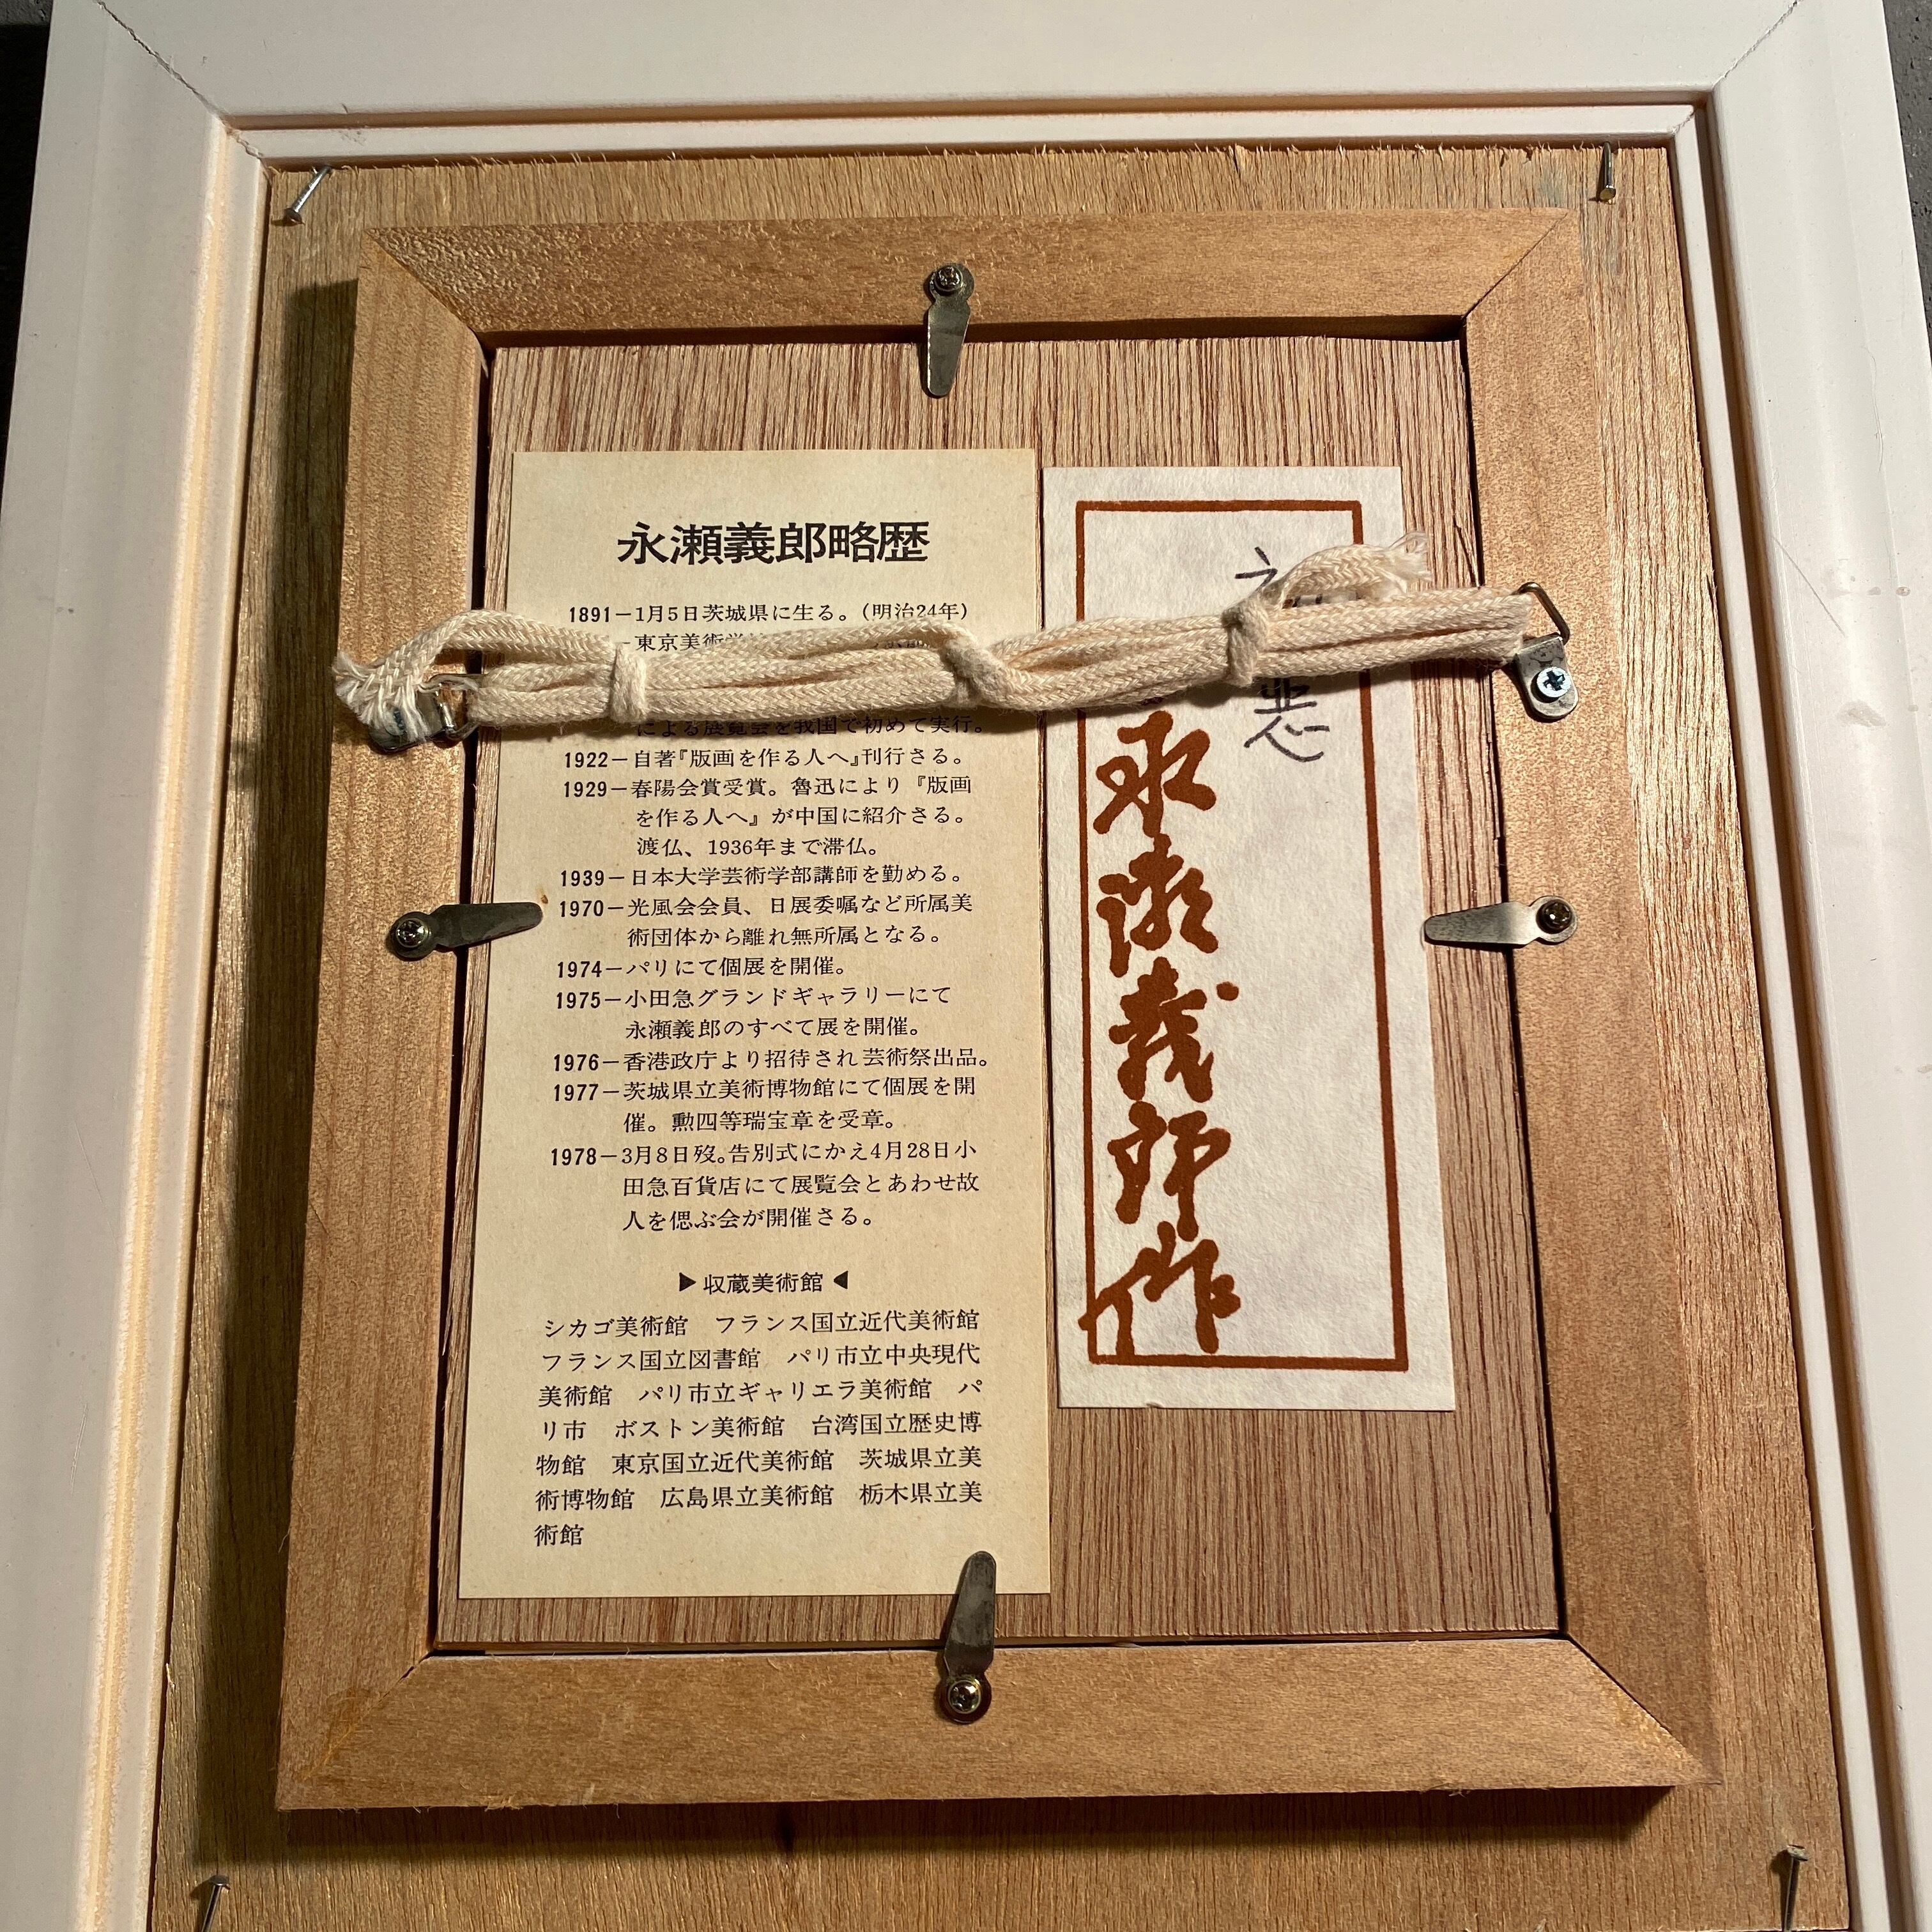 永瀬義郎略歴
1891－1月5日茨城県に生る。(明治24年)
－東京美術学
による展覧会を我国で初めて実行。
1922－自著『版画を作る人へ』刊行さる。
1929－春陽会賞受賞。魯迅により『版画
を作る人へ』が中国に紹介さる。
渡仏、1936年まで滞仏。
1939－日本大学芸術学部講師を勤める。
1970－光風会会員、日展委嘱など所属美
術団体から離れ無所属となる。
1974－パリにて個展を開催。
1975－小田急グランドギャラリーにて
永瀬義郎のすべて展を開催。
1976－香港政庁より招待され芸術祭出品。
1977－茨城県立美術博物館にて個展を開
催。勲四等瑞宝章を受章。
1978－3月8日歿。告別式にかえ4月28日小
田急百貨店にて展覧会とあわせ故
人を偲ぶ会が開催さる。
▶収蔵美術館◀
シカゴ美術館　フランス国立近代美術館
フランス国立図書館　パリ市立中央現代
美術館　パリ市立ギャリエラ美術館　パ
リ市　ボストン美術館　台湾国立歴史博
物館　東京国立近代美術館　茨城県立美
術博物館　広島県立美術館　栃木県立美
術館
永瀬義郎作